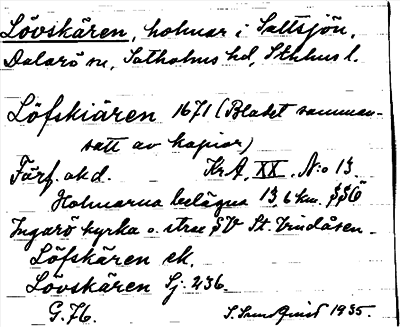 Lövskären, holmar i Saltsjön,
Dalarö sn, Sotholms hd, Sthlms l.
Löfskiären 1671 (Bladet samman-
satt av kopior)
Förf. okd. KrA, XX. N:o 13.
Holmarna belägna 13,6 km. SSÖ
Ingarö kyrka o. strax SV St. Vindåsen.
Löfskären ek.
Lövskären Sj. 236.
G.76. S. Sundquist 1935.